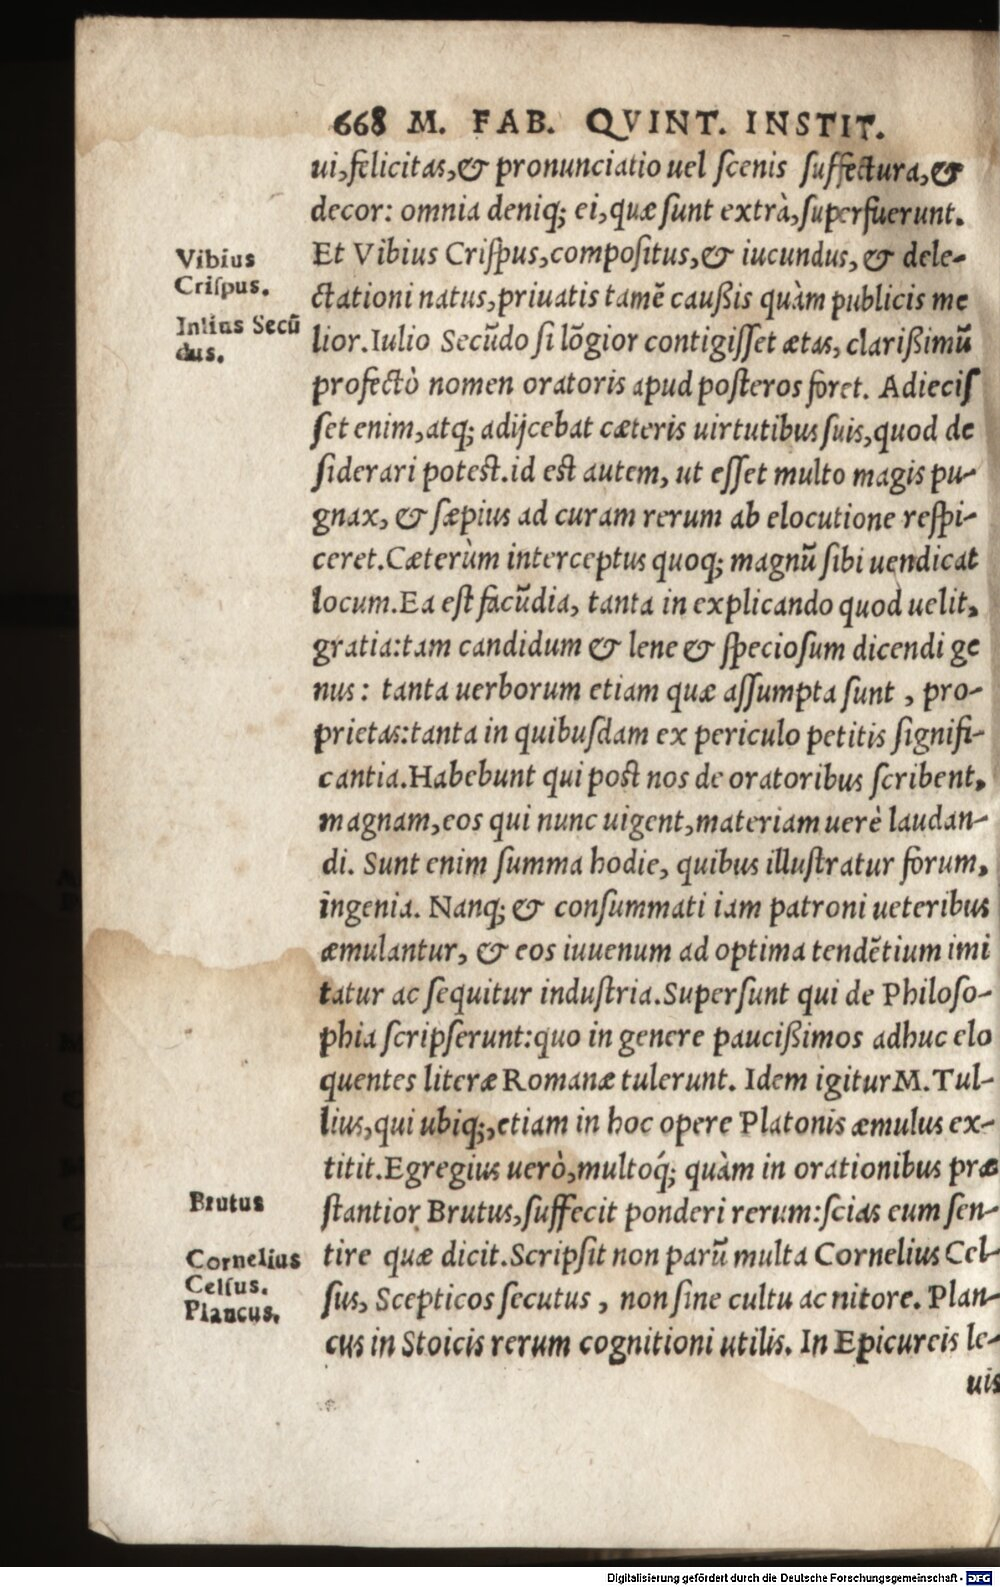 668 M. FAB. QVINT. INSTIT.
ui, felicitas, & pronunciatio uel scenis suffectura, &
decor: omnia deniq; ei, quæ sunt extrà, superfuerunt.
Vibius
Crispus.
Et Vibius Crispus, compositus, & iucundus, & dele-
ctationi natus, priuatis tamẽ caußis quàm publicis me
Iulius Secũ
dus.
lior. Iulio Secũdo si lõgior contigisset ætas, clarißimũ
profectò nomen oratoris apud posteros foret. Adiecis
set enim, atq; adijcebat cæteris uirtutibus suis, quod de
siderari potest. id est autem, ut esset multo magis pu-
gnax, & sæpius ad curam rerum ab elocutione respi-
ceret. Cæterùm interceptus quoq; magnũ sibi uendicat
locum. Ea est facũdia, tanta in explicando quod uelit,
gratia: tam candidum & lene & speciosum dicendi ge
nus: tanta uerborum etiam quæ assumpta sunt, pro-
prietas: tanta in quibusdam ex periculo petitis signifi-
cantia. Habebunt qui post nos de oratoribus scribent,
magnam, eos qui nunc uigent, materiam uerè laudan-
di. Sunt enim summa hodie, quibus illustratur forum,
ingenia. Nanq; & consummati iam patroni ueteribus
æmulantur, & eos iuuenum ad optima tendẽtium imi
tatur ac sequitur industria. Supersunt qui de Philoso-
phia scripserunt: quo in genere paucißimos adhuc elo
quentes literæ Romanæ tulerunt. Idem igitur M. Tul-
lius, qui ubiq;, etiam in hoc opere Platonis æmulus ex-
titit. Egregius uerò, multoq́; quàm in orationibus præ
Brutus
stantior Brutus, suffecit ponderi rerum: scias eum sen-
Cornelius
Celsus.
Plancus.
tire quæ dicit. Scripsit non parũ multa Cornelius Cel-
sus, Scepticos secutus, non sine cultu ac nitore. Plan-
cus in Stoicis rerum cognitioni utilis. In Epicureis le-
uis
Digitalisierung gefördert durch die Deutsche Forschungsgemeinschaft - DFG